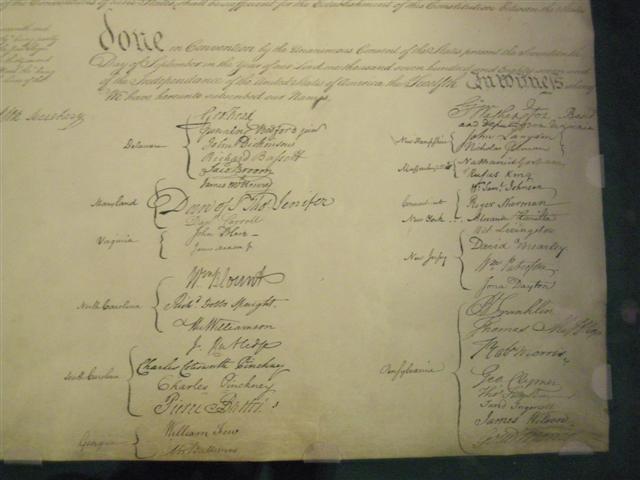 of the Conventions of nine States, shall be sufficient for the Establishment of this Constitution between the States
done in Convention by the Unanimous Consent of the States present the Seventeenth
Day of September in the Year of our Lord one thousand seven hundred and Eighty seven and
of the Independance of the United States of America the Twelfth In witness whereof
We have hereunto subscribed our Names,
Go: Washington Presidt
and deputy from Virginia
Delaware
Geo: Read
Gunning Bedford jun
John Dickinson
Richard Bassett
Jaco: Broom
Maryland
James McHenry
Dan of St Thos Jenifer
Danl Carroll
Virginia
John Blair—
James Madison Jr
North Carolina
Wm Blount
Richd Dobbs Spaight.
Hu Williamson
South Carolina
J. Rutledge
Charles Cotesworth Pinckney
Charles Pinckney
Pierce Butler
Georgia
William Few
Abr Baldwin
New Hampshire
John Langdon
Nicholas Gilman
Massachusetts
Nathaniel Gorham
Rufus King
Connecticut
Wm Saml Johnson
Roger Sherman
New York
Alexander Hamilton
New Jersey
Wil: Livingston
David Brearley
Wm Paterson
Jona: Dayton
Pensylvania
B Franklin
Thomas Mifflin
Robt Morris
Geo. Clymer
Thos FitzSimons
Jared Ingersoll
James Wilson
Gouv Morris